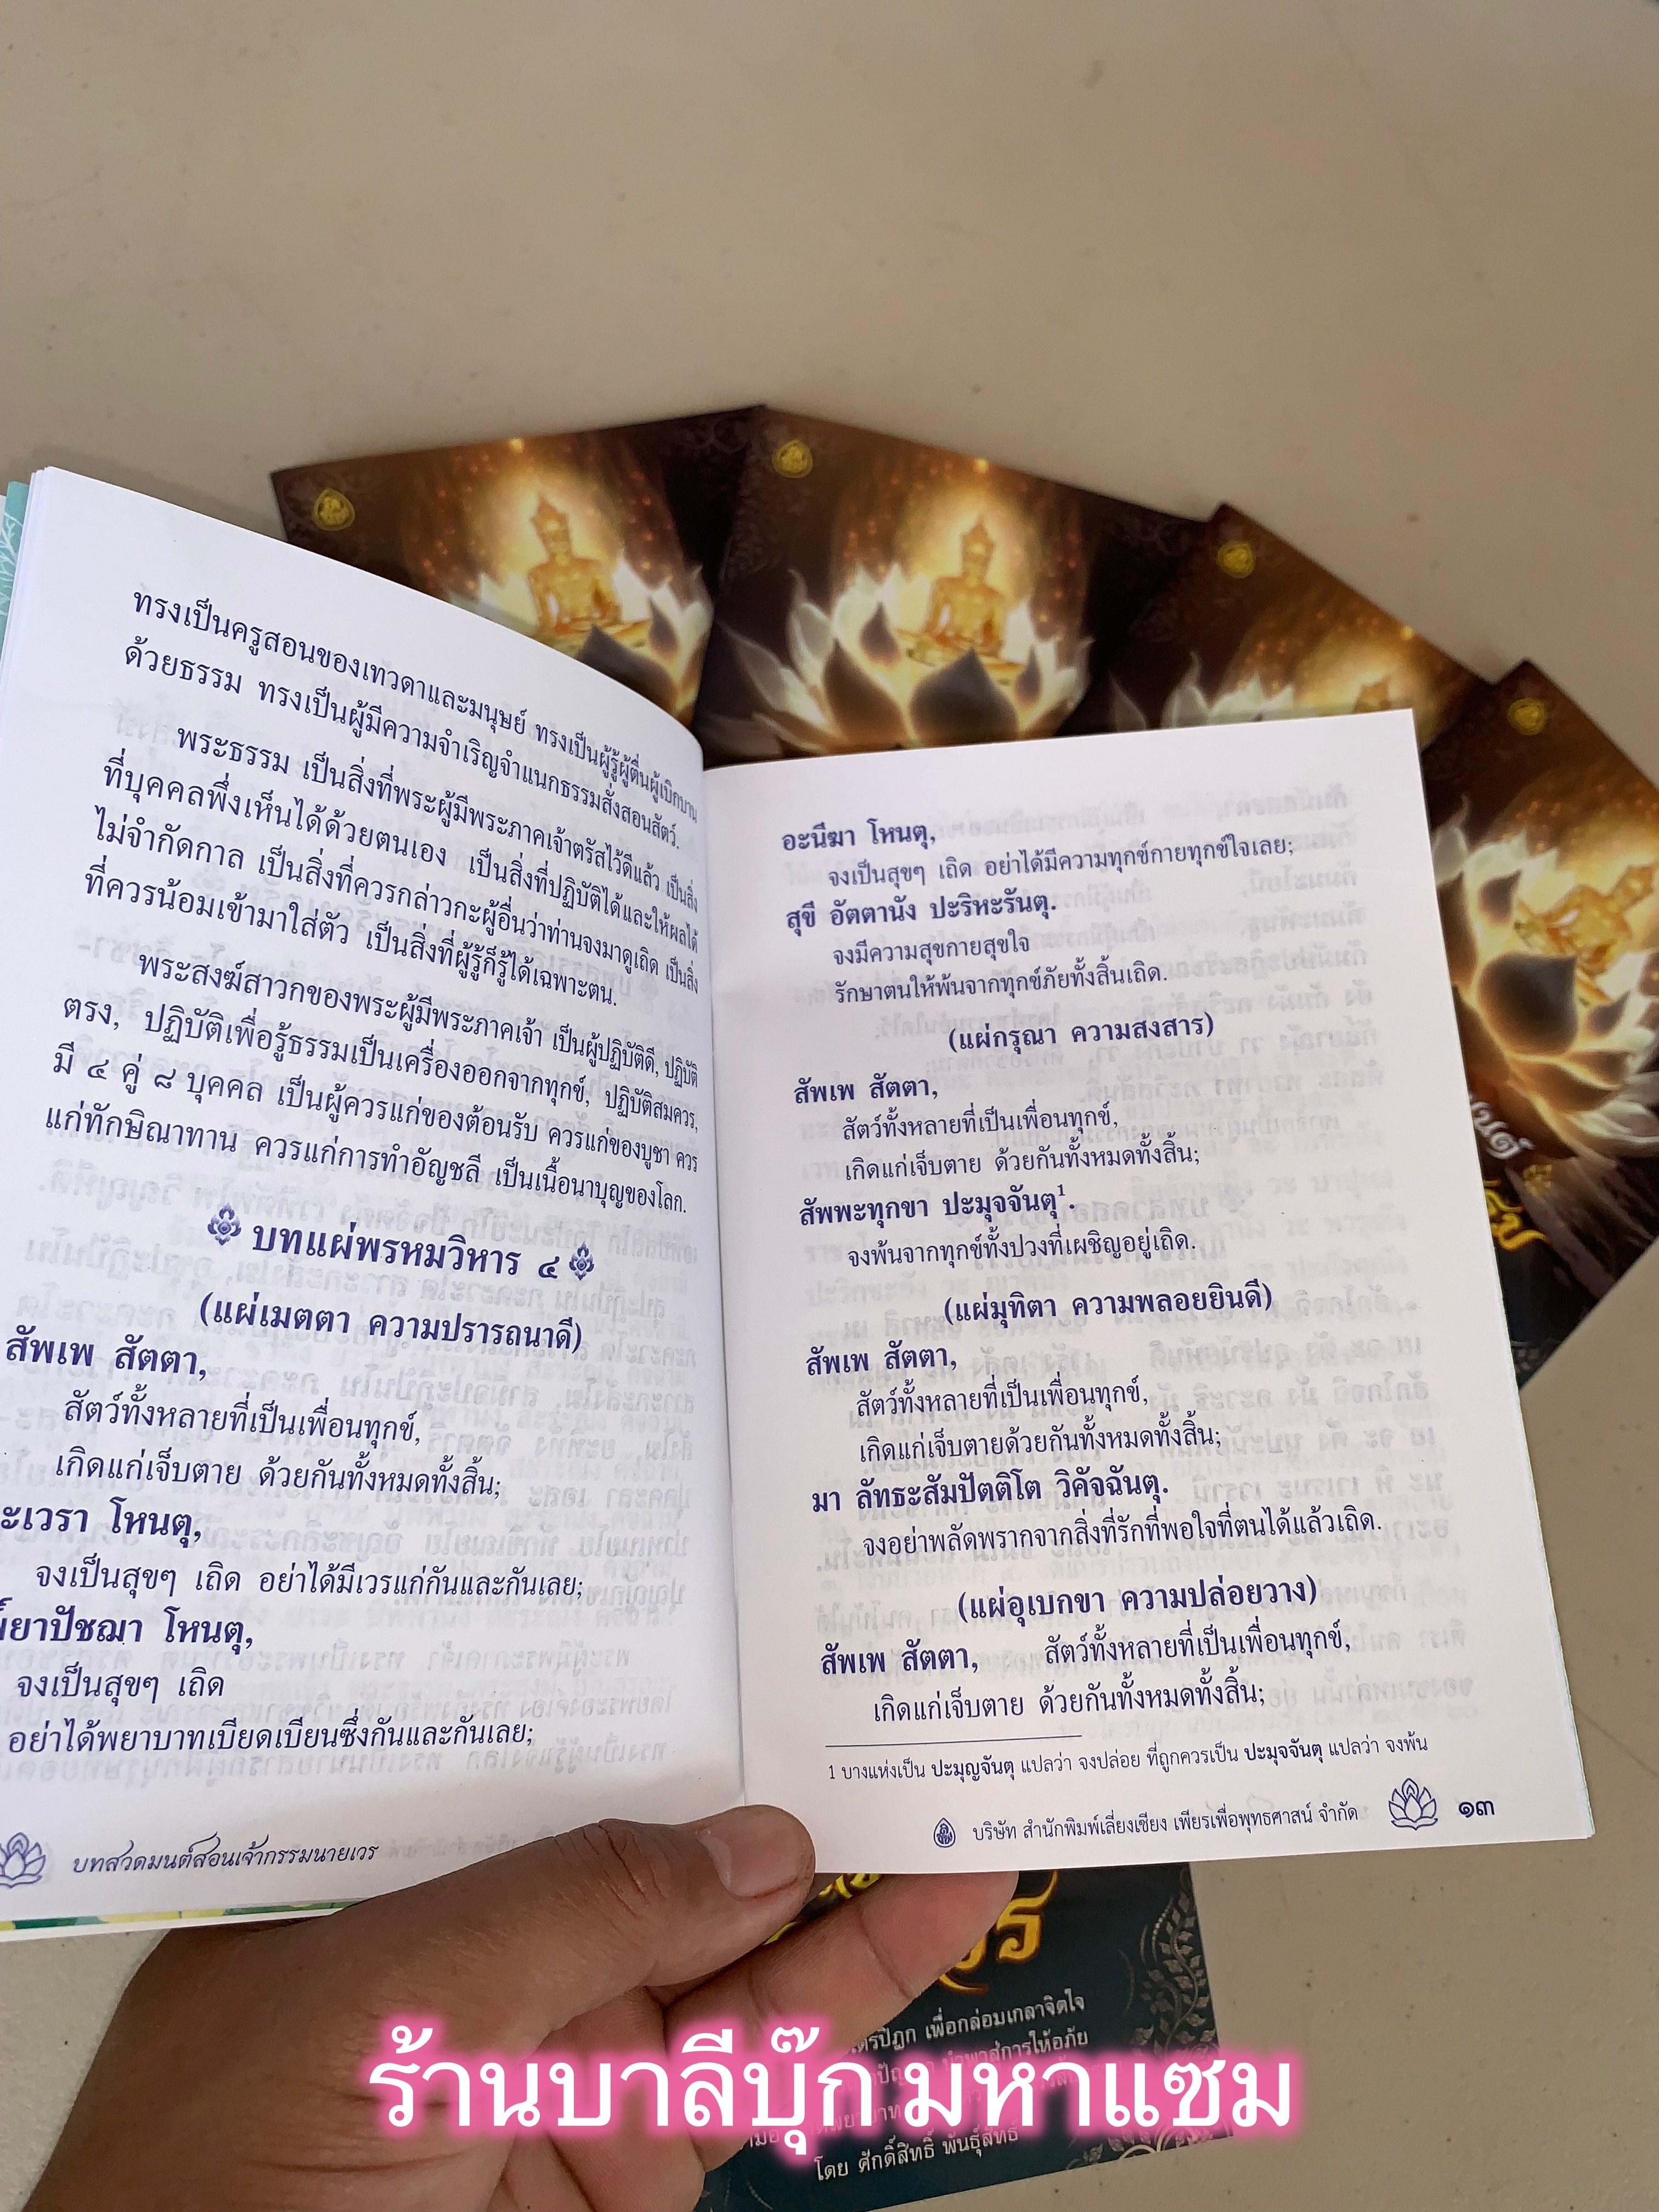 ทรงเป็นครูสอนของเทวดาและมนุษย์ ทรงเป็นผู้รู้ผู้ตื่นผู้เบิกบาน
ด้วยธรรม ทรงเป็นผู้มีความจำเริญจำแนกธรรมสั่งสอนสัตว์.
พระธรรม เป็นสิ่งที่พระผู้มีพระภาคเจ้าตรัสไว้ดีแล้ว เป็นสิ่ง
ที่บุคคลพึงเห็นได้ด้วยตนเอง เป็นสิ่งที่ปฏิบัติได้และให้ผลได้
ไม่จำกัดกาล เป็นสิ่งที่ควรกล่าวกะผู้อื่นว่าท่านจงมาดูเถิด เป็นสิ่ง
ที่ควรน้อมเข้ามาใส่ตัว เป็นสิ่งที่ผู้รู้ก็รู้ได้เฉพาะตน.
พระสงฆ์สาวกของพระผู้มีพระภาคเจ้า เป็นผู้ปฏิบัติดี, ปฏิบัติ
ตรง, ปฏิบัติเพื่อรู้ธรรมเป็นเครื่องออกจากทุกข์, ปฏิบัติสมควร,
มี ๔ คู่ ๘ บุคคล เป็นผู้ควรแก่ของต้อนรับ ควรแก่ของบูชา ควร
แก่ทักษิณาทาน ควรแก่การทำอัญชลี เป็นเนื้อนาบุญของโลก.
บทแผ่พรหมวิหาร ๔
(แผ่เมตตา ความปรารถนาดี)
สัพเพ สัตตา,
สัตว์ทั้งหลายที่เป็นเพื่อนทุกข์,
เกิดแก่เจ็บตาย ด้วยกันทั้งหมดทั้งสิ้น;
ะเวรา โหนตุ,
จงเป็นสุขๆ เถิด อย่าได้มีเวรแก่กันและกันเลย;
พ์ยาปัชฌา โหนตุ,
จงเป็นสุขๆ เถิด
อย่าได้พยาบาทเบียดเบียนซึ่งกันและกันเลย;
บทสวดมนต์สอนเจ้ากรรมนายเวร
อะนีฆา โหนตุ,
จงเป็นสุขๆ เถิด อย่าได้มีความทุกข์กายทุกข์ใจเลย;
สุขี อัตตานัง ปะริหะรันตุ.
จงมีความสุขกายสุขใจ
รักษาตนให้พ้นจากทุกข์ภัยทั้งสิ้นเถิด.
(แผ่กรุณา ความสงสาร)
สัพเพ สัตตา,
สัตว์ทั้งหลายที่เป็นเพื่อนทุกข์,
เกิดแก่เจ็บตาย ด้วยกันทั้งหมดทั้งสิ้น;
สัพพะทุกขา ปะมุจจันตุ¹.
จงพ้นจากทุกข์ทั้งปวงที่เผชิญอยู่เถิด.
(แผ่มุทิตา ความพลอยยินดี)
สัพเพ สัตตา,
สัตว์ทั้งหลายที่เป็นเพื่อนทุกข์,
เกิดแก่เจ็บตายด้วยกันทั้งหมดทั้งสิ้น;
มา ลัทธะสัมปัตติโต วิคัจฉันตุ.
จงอย่าพลัดพรากจากสิ่งที่รักที่พอใจที่ตนได้แล้วเถิด.
(แผ่อุเบกขา ความปล่อยวาง)
สัพเพ สัตตา, สัตว์ทั้งหลายที่เป็นเพื่อนทุกข์,
เกิดแก่เจ็บตาย ด้วยกันทั้งหมดทั้งสิ้น;
1 บางแห่งเป็น ปะมุญจันตุ แปลว่า จงปล่อย ที่ถูกควรเป็น ปะมุจจันตุ แปลว่า จงพ้น
บริษัท สำนักพิมพ์เลี่ยงเชียง เพียรเพื่อพุทธศาสน์ จำกัด ๑๓
เพื่อกล่อมเกลาจิตใจ
ร้านบาลีบุ๊ก มหาแซม
โดย ศักดิ์สิทธิ์ พันธุ์สัทธ์